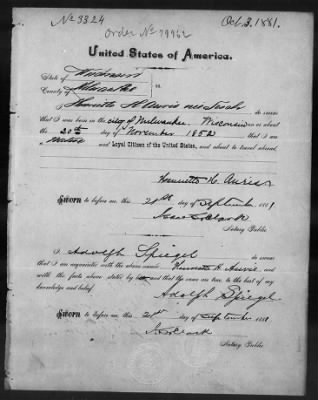 No 3324
Oct 3. 1881.
Order No 79962
United States of America.
State of Wisconsin
County of Milwaukee
do swear
that I was born in the city of Milwaukee Wisconsin on or about
the 20th day of November 1852 that I am
a Native and Loyal Citizen of the United States, and about to travel abroad.
Sworn to before me this 21st day of September 1881
Notary Public.
I Adolph Spiegel do swear
that I am acquainted with the above named
with the facts above stated by her and that the same are true, to the best of my
knowledge and belief.
Adolph Spiegel
Sworn to before me this 21st day of September 1881
Notary Public